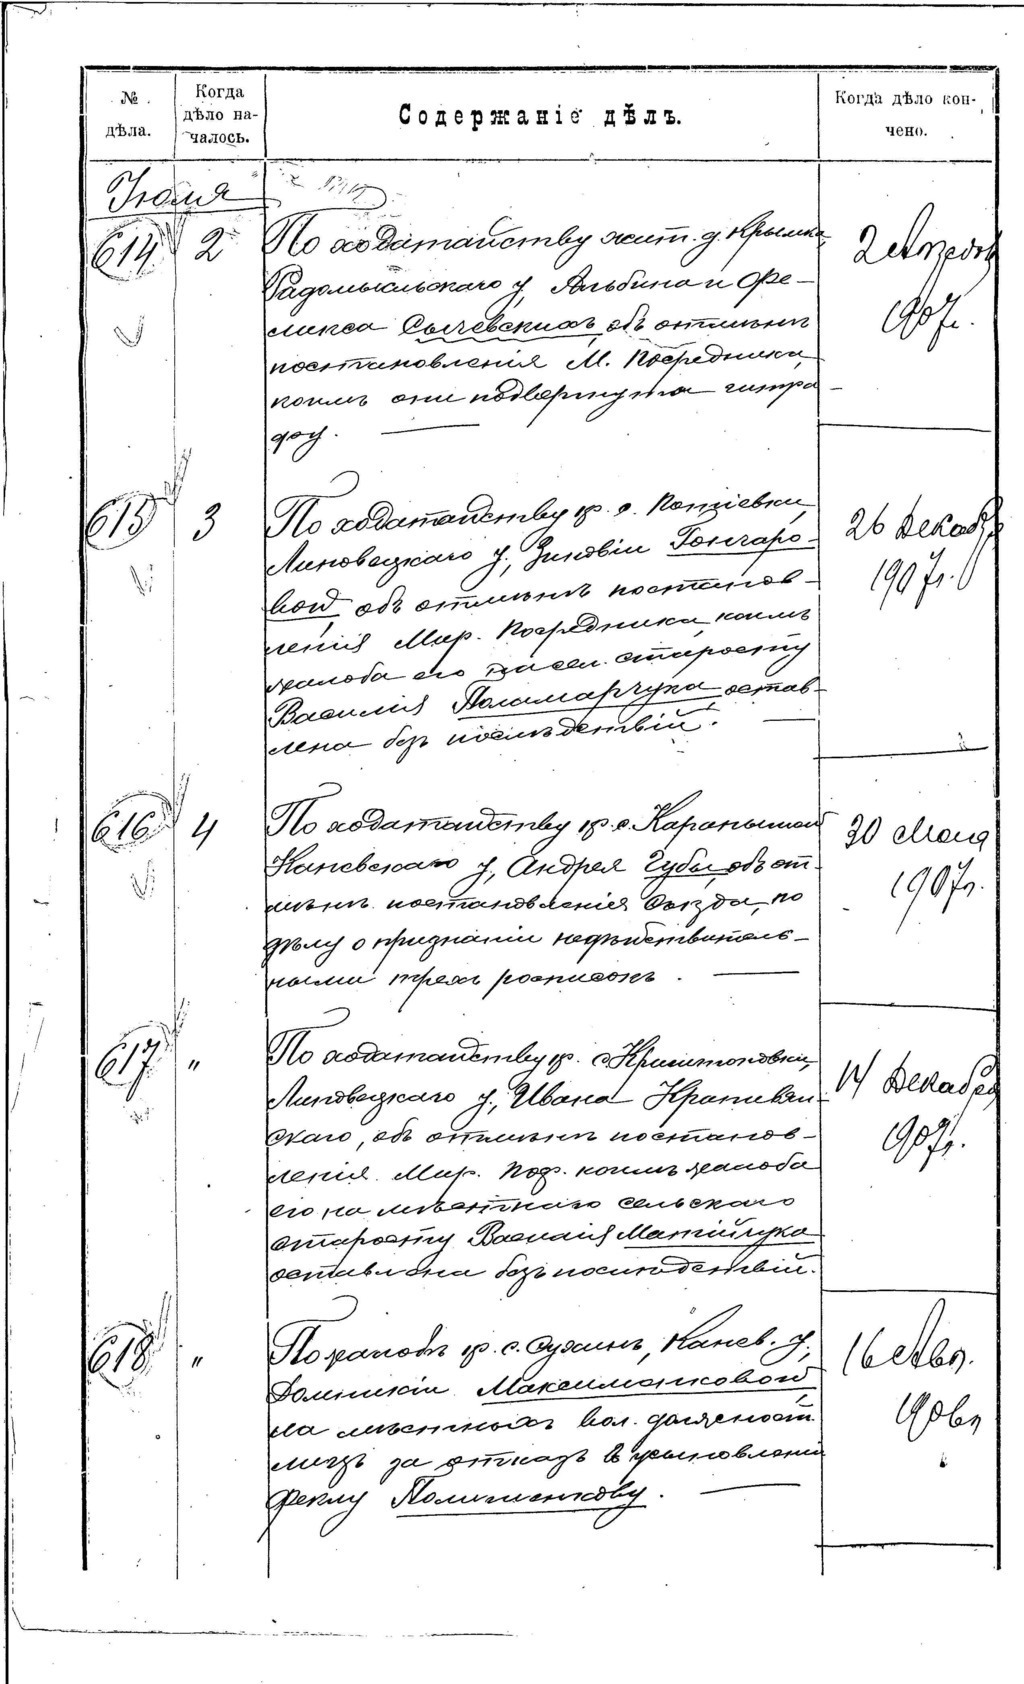 № дѣла.
Когда дѣло началось.
Содержаніе дѣлъ.
Когда дѣло кончено.
Іюля
614 2
По ходатайству жит. д. Крымка,
Радомысльскаго у, Альбина и Фе-
ликса Сычевскихъ, объ отмѣнѣ
постановленія М. Посредника,
коимъ они подвергнуты штра
фу.
2
1907г.
615 3
По ходатайству кр. с.
Липовецкаго у., Зиновіи Гончаро-
вой, объ отмѣнѣ постанов-
ленія Мир. Посредника, коимъ
жалоба его на сел. старосту
Василія Паламарчука остав-
лена безъ послѣдствій.
26 Декабр
1907г.
616 4
По ходатайству кр. с. Карапышей
Каневскаго у., Андрея Губы, объ от-
мѣнѣ постановленія Съѣзда, по
дѣлу о признаніи недѣйствитель-
ными трехъ росписокъ.
30 Мая
1907г.
617 "
По ходатайству кр. с. Криштоповки,
Липовецкаго у., Ивана Крапивян-
скаго, объ отмѣнѣ постанов-
ленія Мир. Пос. коимъ жалоба
его на мѣстнаго сельскаго
старосту Василія Матійчука
оставлена безъ послѣдствій.
14 Декабря
1907г.
618 "
По жалобѣ кр. с. Сухинъ, Канев. у.,
Домникіи Максименковой
на мѣстныхъ вол. должност.
лицъ за отказъ въ усыновленіи
Феклу
16 Авг.
1906г